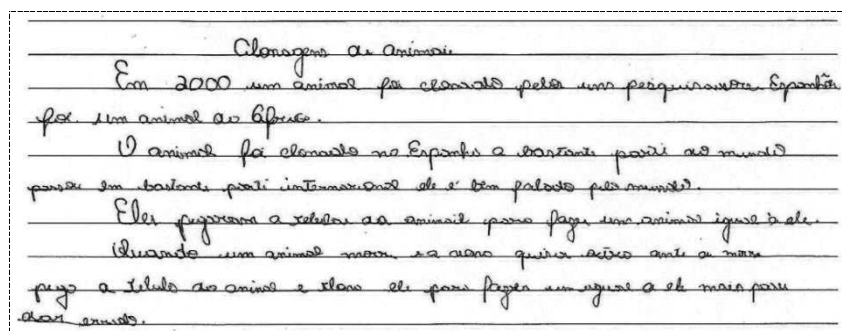 Clonagens de animais
Em 2000 um animal foi clonado pelos uns pesquisadores Espanhõis
foi um animal da África.
O animal foi clonado na Espanha a bastante parti do mundo
passou em bastante parti internacional ele é bem falado pelo mundo.
Eles pegaram a celulas do animail para fazer um animal igual à ele.
Quando um animal morr quiser outro ante de morre
pego a celula do animal e clona ele para fazer um igual a ele mais para